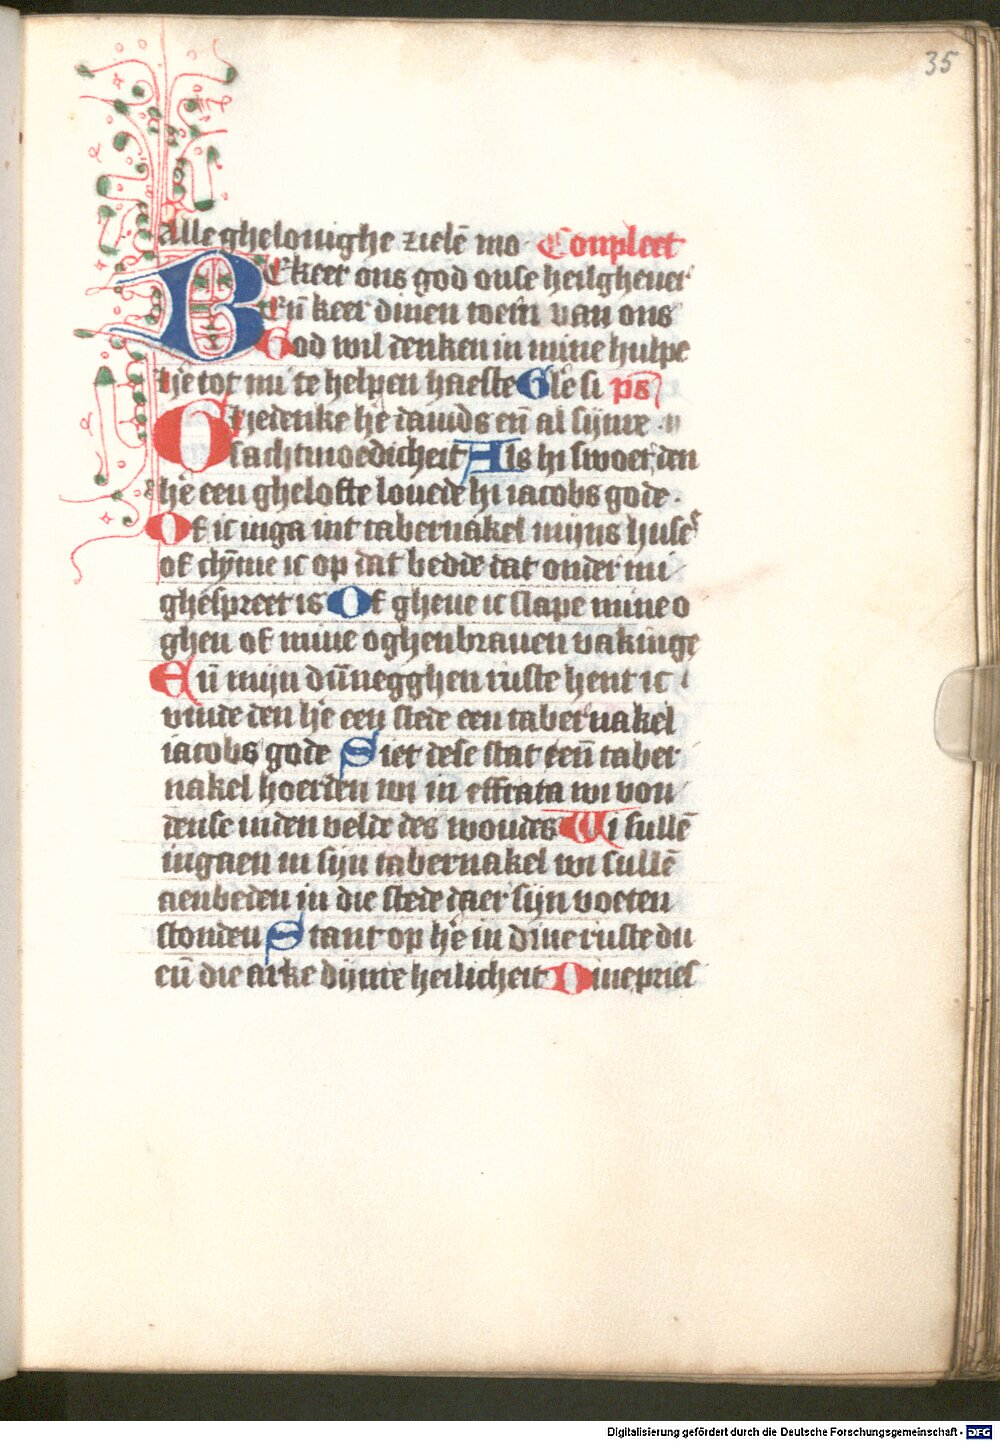 35
Alle ghelouighe zielē mo Conpleet
BEkeer ons god onse heilgheuer
Eñ keer dinen toern van ons
God wil denken in mine hulpe
hē tot mi te helpen haeste Glē si ps
Ghedenke hē dauids eñ al sijnre
sachtmoedicheit Als hi swoer den
hē een ghelofte louede hi iacobs gode.
Of ic inga int tabernakel mijns huses
of clȳme ic op dat bedde dat onder mi
ghespreet is Of gheue ic slape mine o
ghen of mine oghenbrauen vakinge
Eñ mijn dūnegghen ruste hent ic
vinde den hē een stede een tabernakel
iacobs gode Siet dese stat eeñ taber
nakel hoerden wi in effrata wi von
dense inden velde des woudes Wi sullē
ingaen in sijn tabernakel wi sullē
aenbeden in die stede daer sijn voeten
stonden Stant op hē in dine ruste du
eñ die arke dijnre heilicheit Dine pries
Digitalisierung gefördert durch die Deutsche Forschungsgemeinschaft - DFG